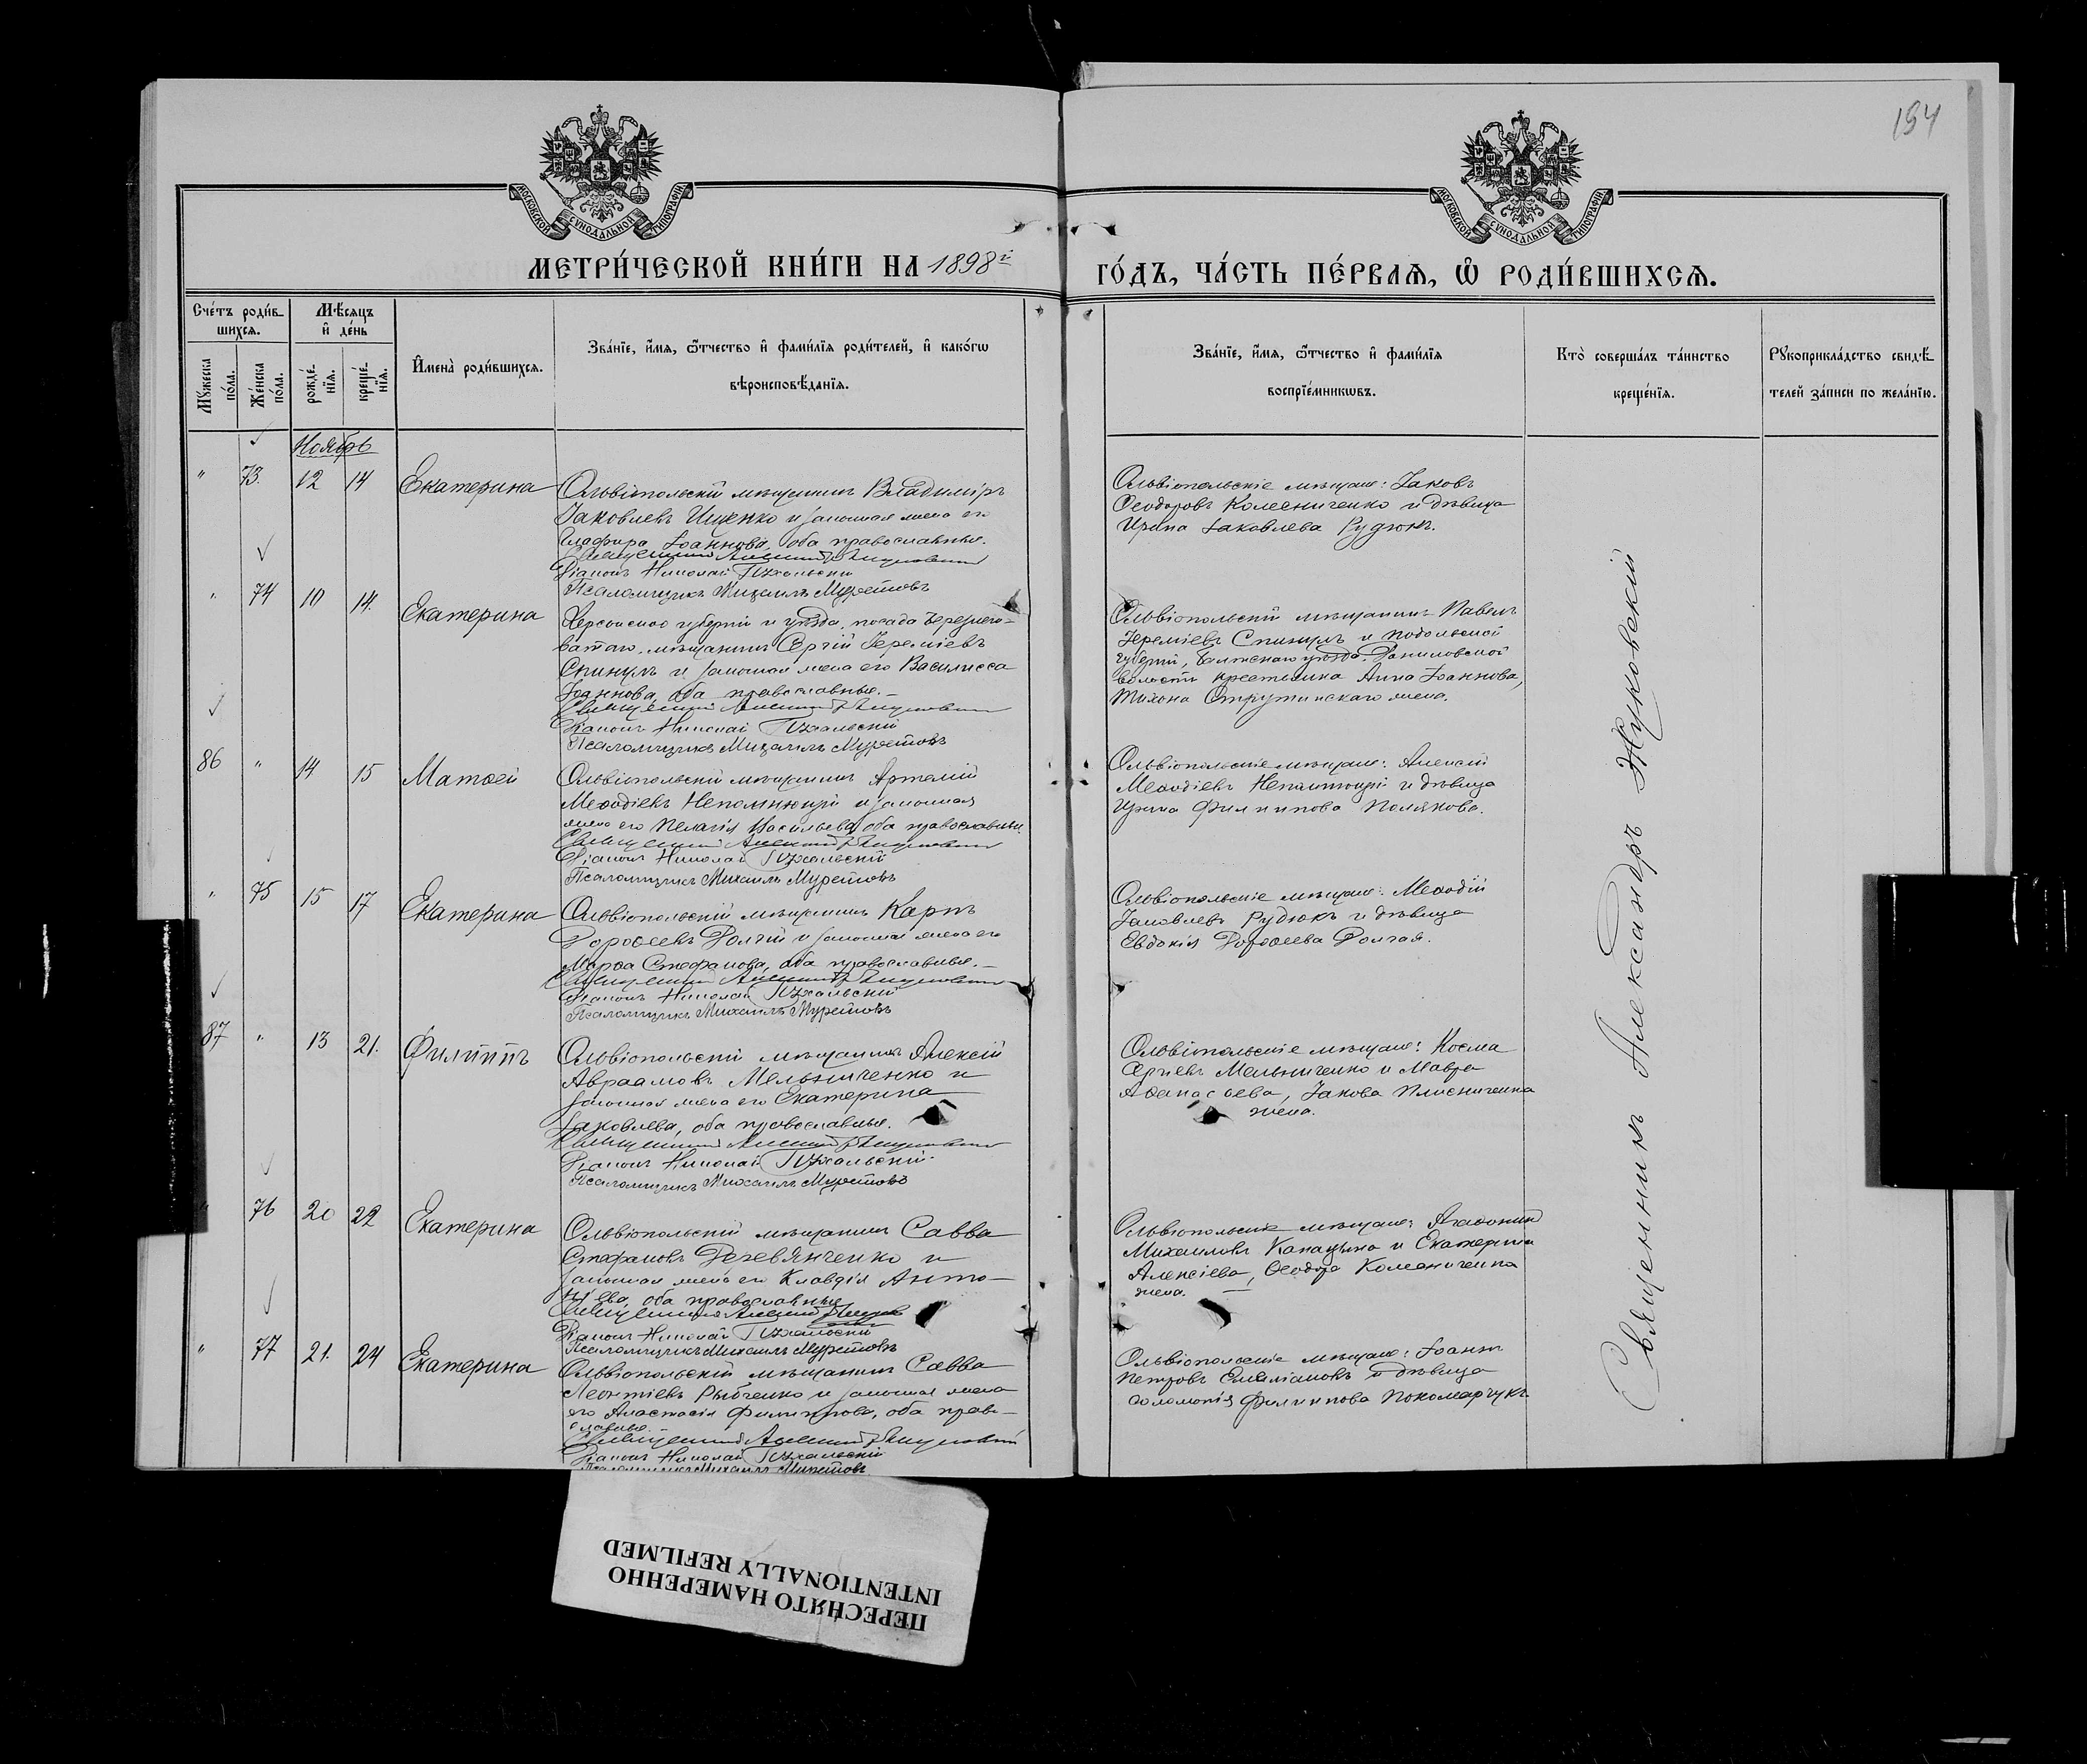 194
МОСКОВСКОЙ СУНОДАЛЬНОЙ ТИПОГРАФІИ
МОСКОВСКОЙ СУНОДАЛЬНОЙ ТИПОГРАФІИ
МЕТРИ́ЧЕСКОЙ КНИ́ГИ НА 1898й
ГО́ДЪ, ЧА́СТЬ ПЕ́РВАѦ, Ѿ РОДИ́ВШИХСѦ.
Сче́тъ роди́вшихсѧ.
Мѣ́сѧцъ и҆ де́нь
Мꙋ́жеска по́ла.
Же́нска по́ла.
рожде́нїѧ.
креще́нїѧ.
И҆мена̀ роди́вшихсѧ.
Зва́нїе, и҆́мѧ, ѻ҆́тчество и҆ фами́лїѧ роди́телей, и҆ како́гѡ
вѣроисповѣ́данїѧ.
Зва́нїе, и҆́мѧ, ѻ҆́тчество и҆ фами́лїѧ
воспрїе́мникѡвъ.
Кто̀ соверша́лъ та́инство
креще́нїѧ.
Рꙋкоприкла́дство свидѣ́
телей за́писи по жела́нїю.
Ноябрь
" 73. 12 14 Екатерина
Ольвіопольскій мѣщанинъ Владиміръ
Іаковлевъ Ищенко и законная жена его
Глафира Іоаннова, оба православные.
Священникъ Александръ Жуковскій
Діаконъ Николай Пухальскій
Псаломщикъ Михаилъ Муретовъ
Ольвіопольскіе мѣщане: Іаковъ
Ѳеодоровъ Колесниченко и дѣвица
Ирина Іаковлева Рудюкъ.
" 74 10 14. Екатерина
Херсонской губерніи и уѣзда, посада Березнего-
ватаго, мѣщанинъ Сергій Іереміевъ
Спинулъ и законная жена его Василисса
Іоаннова, оба православные.
Священникъ Александръ Жуковскій
Діаконъ Николай Пухальскій
Псаломщикъ Михаилъ Муретовъ
Ольвіопольскій мѣщанинъ Павелъ
Іереміевъ Спинулъ и Подольской
губерніи, Балтскаго уѣзда, Даниловской
волости крестьянка Анна Іоаннова,
Тихона Струтинскаго жена.
86 " 14 15 Матѳей
Ольвіопольскій мѣщанинъ Артемій
Меѳодіевъ Непомнющій и законная
жена его Пелагія Васильева, оба православные.
Священникъ Александръ Жуковскій
Діаконъ Николай Пухальскій
Псаломщикъ Михаилъ Муретовъ
Ольвіопольскіе мѣщане: Алексій
Меѳодіевъ Непомнющій и дѣвица
Ирина Филиппова Полякова.
" 75 15 17 Екатерина
Ольвіопольскій мѣщанинъ Карпъ
Дороѳеевъ Долгій и законная жена его
Марѳа Стефанова, оба православные.
Священникъ Александръ Жуковскій
Діаконъ Николай Пухальскій
Псаломщикъ Михаилъ Муретовъ
Ольвіопольскіе мѣщане: Меѳодій
Іаковлевъ Рудюкъ и дѣвица
Евдокія Дороѳеева Долгая.
87 " 13 21. Филиппъ
Ольвіопольскій мѣщанинъ Алексій
Авраамовъ Мельниченко и
законная жена его Екатерина
Іаковлева, оба православные.
Священникъ Александръ Жуковскій
Діаконъ Николай Пухальскій
Псаломщикъ Михаилъ Муретовъ
Ольвіопольскіе мѣщане: Косма
Сергіевъ Мельниченко и Мавра
Аѳанасьева, Іакова
жена.
76 20 22 Екатерина
Ольвіопольскій мѣщанинъ Савва
Стефановъ Деревянченко и
законная жена его Клавдія Анто-
ніева, оба православные
Священникъ Александръ Жуковскій
Діаконъ Николай Пухальскій
Псаломщикъ Михаилъ Муретовъ
Ольвіопольскіе мѣщане: Агаѳоникъ
Михаиловъ и Екатерина
Алексіева, Ѳеодора Колесниченка
жена.
" 77 21. 24 Екатерина
Ольвіопольскій мѣщанинъ Савва
Леонтіевъ Рыбченко и законная жена
его Анастасія Филиппова, оба право-
славные.
Священникъ Александръ Жуковскій
Діаконъ Николай Пухальскій
Псаломщикъ Михаилъ Муретовъ
Ольвіопольскіе мѣщане: Іоаннъ
Петровъ Емиліановъ и дѣвица
Соломонія Филиппова Пономарчукъ.
Священникъ Александръ Жуковскій
ПЕРЕСНЯТО НАМЕРЕННО
INTENTIONALLY REFILMED